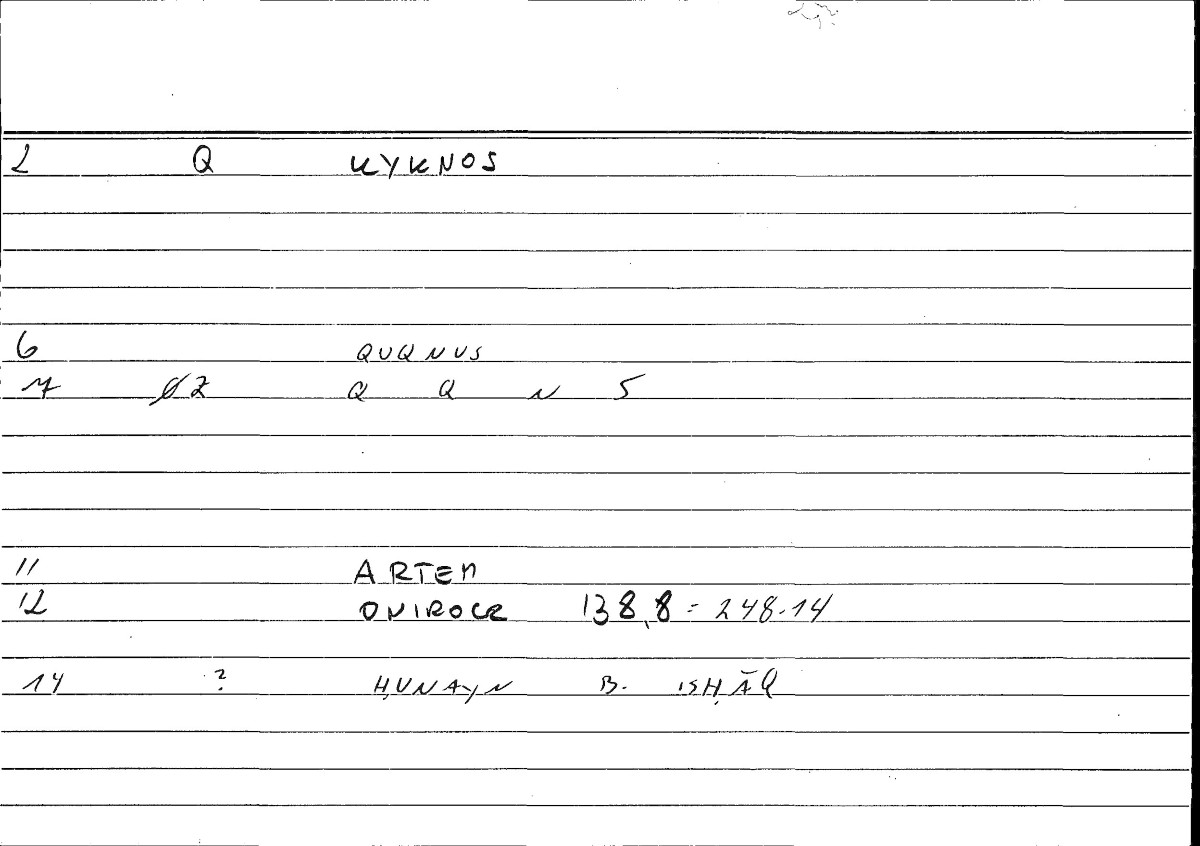 2 Q KYKNOS
6 QUQNUS
7 02 Q Q N S
11 ARTEM
12 ONIROCR 138,8 = 248.14
14 ? ḤUNAYN B. ISḤĀQ